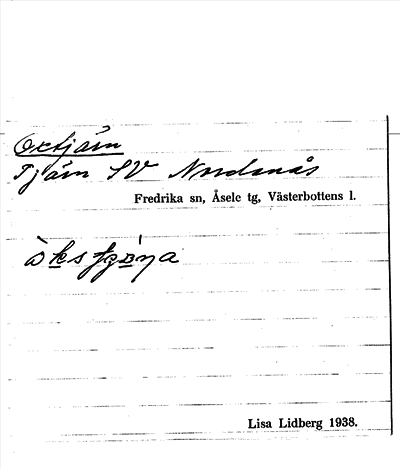 Oxtjärn
Tjärn SV Nordanås
Fredrika sn, Åsele tg, Västerbottens l.
Lisa Lidberg 1938.